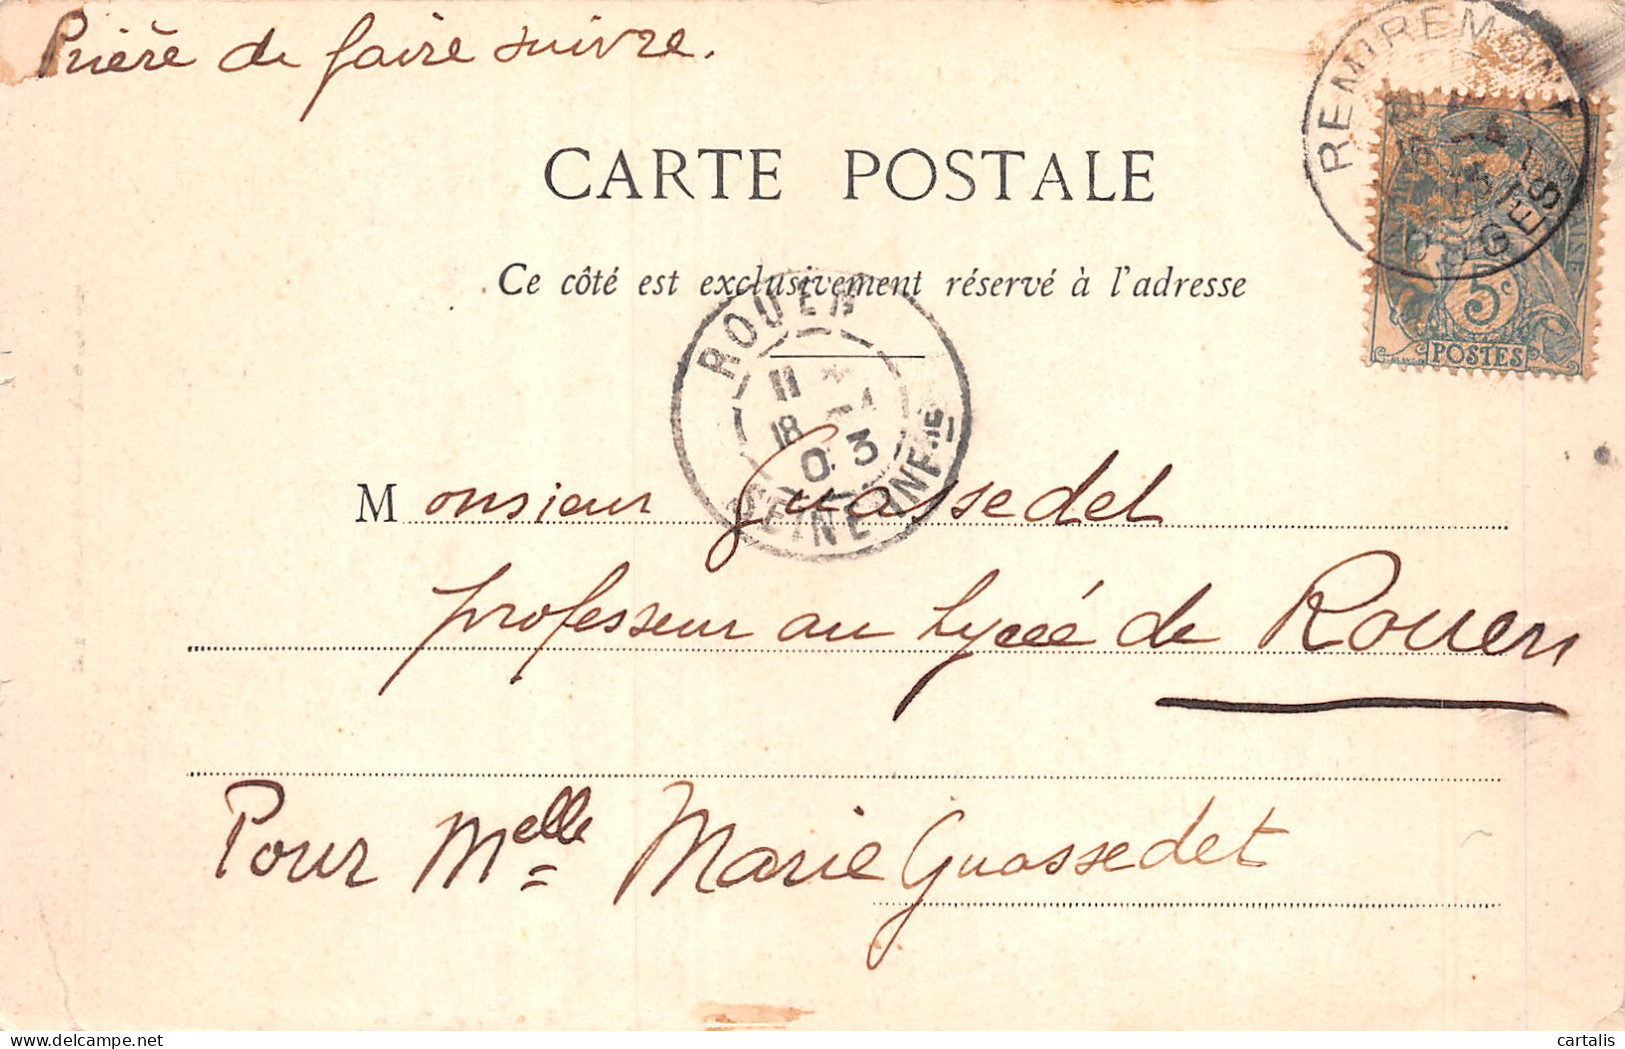 Prière de faire suivre.
REMIREMONT
VOSGES
5c
POSTES
CARTE POSTALE
Ce côté est exclusivement réservé à l'adresse
ROUEN
11
18
03
SEINE-INFRE
Monsieur Guassedet
professeur au Lycée de Rouen
Pour Melle Marie Guassedet
cartalis